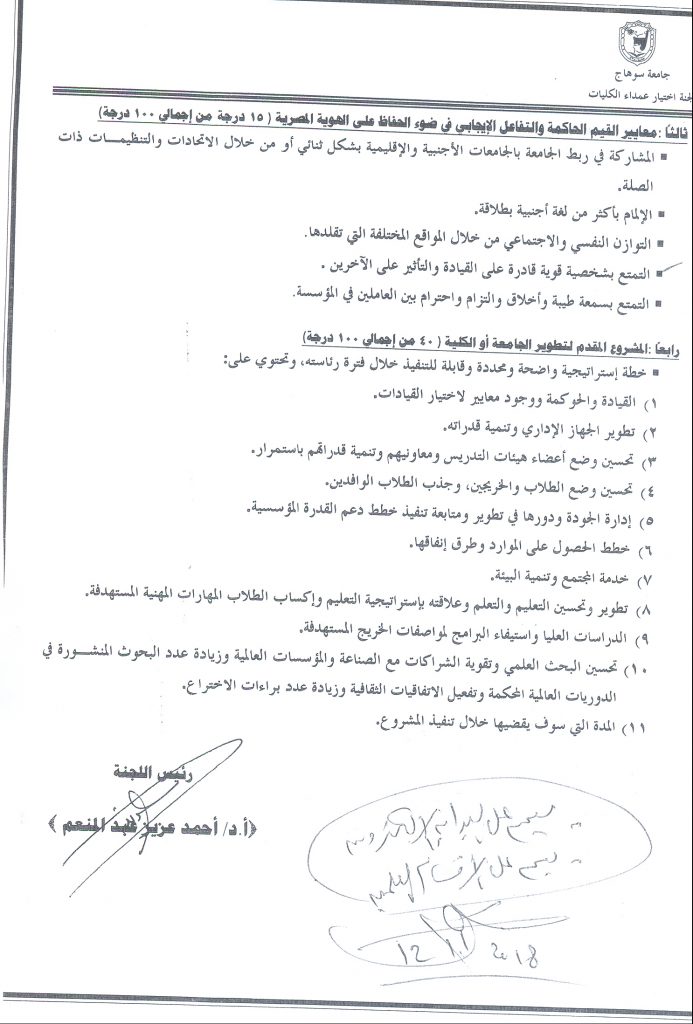 جامعة سوهاج
لجنة اختيار عمداء الكليات
ثالثًا :معايير القيم الحاكمة والتفاعل الإيجابي في ضوء الحفاظ على الهوية المصرية ( ١٥ درجة من إجمالي ١٠٠ درجة)
▪ المشاركة في ربط الجامعة بالجامعات الأجنبية والإقليمية بشكل ثنائي أو من خلال الاتحادات والتنظيمات ذات
الصلة.
▪ الإلمام بأكثر من لغة أجنبية بطلاقة.
▪ التوازن النفسي والاجتماعي من خلال المواقع المختلفة التي تقلدها.
▪ التمتع بشخصية قوية قادرة على القيادة والتأثير على الآخرين .
▪ التمتع بسمعة طيبة وأخلاق والتزام واحترام بين العاملين في المؤسسة.
رابعًا :المشروع المقدم لتطوير الجامعة أو الكلية ( ٤٠ من إجمالي ١٠٠ درجة)
▪ خطة إستراتيجية واضحة ومحددة وقابلة للتنفيذ خلال فترة رئاسته، وتحتوي على:
١) القيادة والحوكمة ووجود معايير لاختيار القيادات.
٢) تطوير الجهاز الإداري وتنمية قدراته.
٣) تحسين وضع أعضاء هيئات التدريس ومعاونيهم وتنمية قدراتهم باستمرار.
٤) تحسين وضع الطلاب والخريجين، وجذب الطلاب الوافدين.
٥) إدارة الجودة ودورها في تطوير ومتابعة تنفيذ خطط دعم القدرة المؤسسية.
٦) خطط الحصول على الموارد وطرق إنفاقها.
٧) خدمة المجتمع وتنمية البيئة.
٨) تطوير وتحسين التعليم والتعلم وعلاقته بإستراتيجية التعليم وإكساب الطلاب المهارات المهنية المستهدفة.
٩) الدراسات العليا واستيفاء البرامج لمواصفات الخريج المستهدفة.
١٠) تحسين البحث العلمي وتقوية الشراكات مع الصناعة والمؤسسات العالمية وزيادة عدد البحوث المنشورة في
الدوريات العالمية المحكمة وتفعيل الاتفاقيات الثقافية وزيادة عدد براءات الاختراع.
١١) المدة التي سوف يقضيها خلال تنفيذ المشروع.
رئيس اللجنة
﴿أ.د/ أحمد عزيز عبد المنعم ﴾
- يعمم على البوابة الإلكترونية
- يعمم على الأقسام العلمية
٢٠١٨